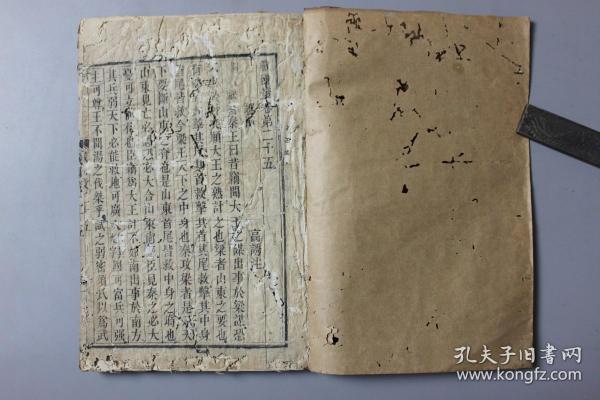 第二十五
高誘注
秦王曰昔竊聞大王之謀出事於梁謀恐
願大王之熟計之也梁者山東之要也
有其尾其首救擊其首其尾救擊其中身
首尾皆救今梁王天下之中身也秦攻梁者是示天
下要斷山東之脊也是山東首尾皆救中身之時也
山東見亡必恐恐必大合山東尚強臣見秦之必大
憂可立而待也臣竊爲大王計不如南出事於南方
其兵弱天下必能救地可廣大國可富兵可強
主可尊王不聞湯之伐桀乎試之弱密須氏以爲武
孔夫子旧書网
www.kongfz.com